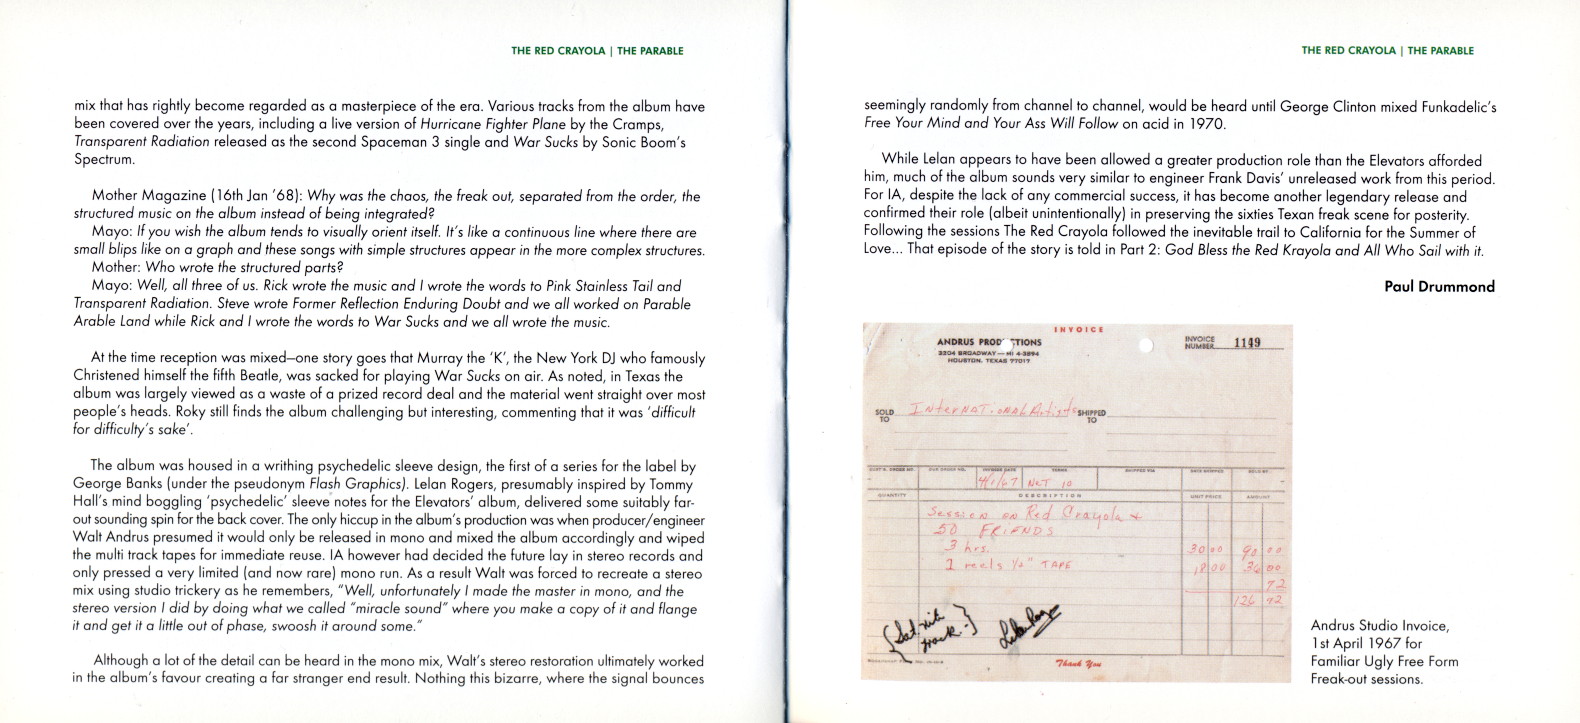 THE RED CRAYOLA | THE PARABLE
mix that has rightly become regarded as a masterpiece of the era. Various tracks from the album have
been covered over the years, including a live version of Hurricane Fighter Plane by the Cramps,
Transparent Radiation released as the second Spaceman 3 single and War Sucks by Sonic Boom's
Spectrum.
Mother Magazine (16th Jan '68): Why was the chaos, the freak out, separated from the order, the
structured music on the album instead of being integrated?
Mayo: If you wish the album tends to visually orient itself. It's like a continuous line where there are
small blips like on a graph and these songs with simple structures appear in the more complex structures.
Mother: Who wrote the structured parts?
Mayo: Well, all three of us. Rick wrote the music and I wrote the words to Pink Stainless Tail and
Transparent Radiation. Steve wrote Former Reflection Enduring Doubt and we all worked on Parable
Arable Land while Rick and I wrote the words to War Sucks and we all wrote the music.
At the time reception was mixed—one story goes that Murray the 'K', the New York DJ who famously
Christened himself the fifth Beatle, was sacked for playing War Sucks on air. As noted, in Texas the
album was largely viewed as a waste of a prized record deal and the material went straight over most
people's heads. Roky still finds the album challenging but interesting, commenting that it was 'difficult
for difficulty's sake'.
The album was housed in a writhing psychedelic sleeve design, the first of a series for the label by
George Banks (under the pseudonym Flash Graphics). Lelan Rogers, presumably inspired by Tommy
Hall's mind boggling 'psychedelic' sleeve notes for the Elevators' album, delivered some suitably far-
out sounding spin for the back cover. The only hiccup in the album's production was when producer/engineer
Walt Andrus presumed it would only be released in mono and mixed the album accordingly and wiped
the multi track tapes for immediate reuse. IA however had decided the future lay in stereo records and
only pressed a very limited (and now rare) mono run. As a result Walt was forced to recreate a stereo
mix using studio trickery as he remembers, "Well, unfortunately I made the master in mono, and the
stereo version I did by doing what we called "miracle sound" where you make a copy of it and flange
it and get it a little out of phase, swoosh it around some."
Although a lot of the detail can be heard in the mono mix, Walt's stereo restoration ultimately worked
in the album's favour creating a far stranger end result. Nothing this bizarre, where the signal bounces
THE RED CRAYOLA | THE PARABLE
seemingly randomly from channel to channel, would be heard until George Clinton mixed Funkadelic's
Free Your Mind and Your Ass Will Follow on acid in 1970.
While Lelan appears to have been allowed a greater production role than the Elevators afforded
him, much of the album sounds very similar to engineer Frank Davis' unreleased work from this period.
For IA, despite the lack of any commercial success, it has become another legendary release and
confirmed their role (albeit unintentionally) in preserving the sixties Texan freak scene for posterity.
Following the sessions The Red Crayola followed the inevitable trail to California for the Summer of
Love... That episode of the story is told in Part 2: God Bless the Red Krayola and All Who Sail with it.
Paul Drummond
INVOICE
ANDRUS PROD TIONS
3204 BROADWAY — MI 4-3894
HOUSTON, TEXAS 77017
INVOICE NUMBER 1149
SOLD TO International Artists SHIPPED TO
INVOICE DATE TERMS SHIPPED VIA DATE SHIPPED
4/1/67 NET 10
QUANTITY DESCRIPTION UNIT PRICE AMOUNT
Session on Red Crayola +
50 FRIENDS
3 hrs. 30 00 90 00
2 reels 1/2" TAPE 18 00 36 00
72
126 72
Thank You
Andrus Studio Invoice,
1st April 1967 for
Familiar Ugly Free Form
Freak-out sessions.